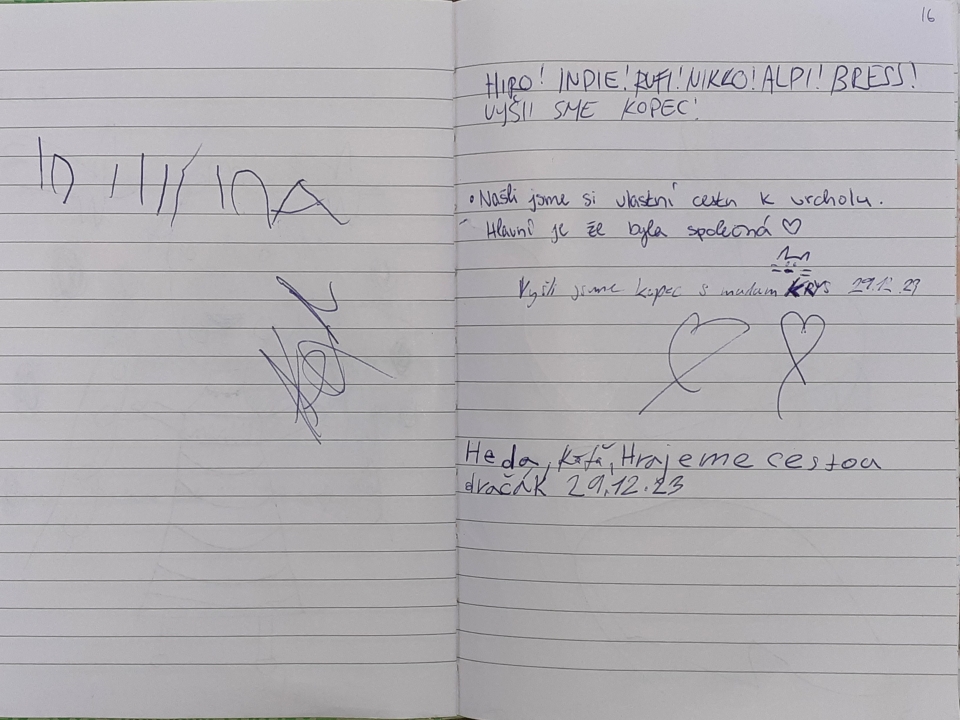 16
HIRO! INDIE! RUFI! NIKKO! ALPI! BRESS!
VYŠLI SME KOPEC!
• Našli jsme si vlastní cestu k vrcholu.
- Hlavní je že byla společná ♡
Vyšli jsme kopec s mulam KRYS 29.12.23
Heda, Hrajeme cestou
dračák 29.12.23